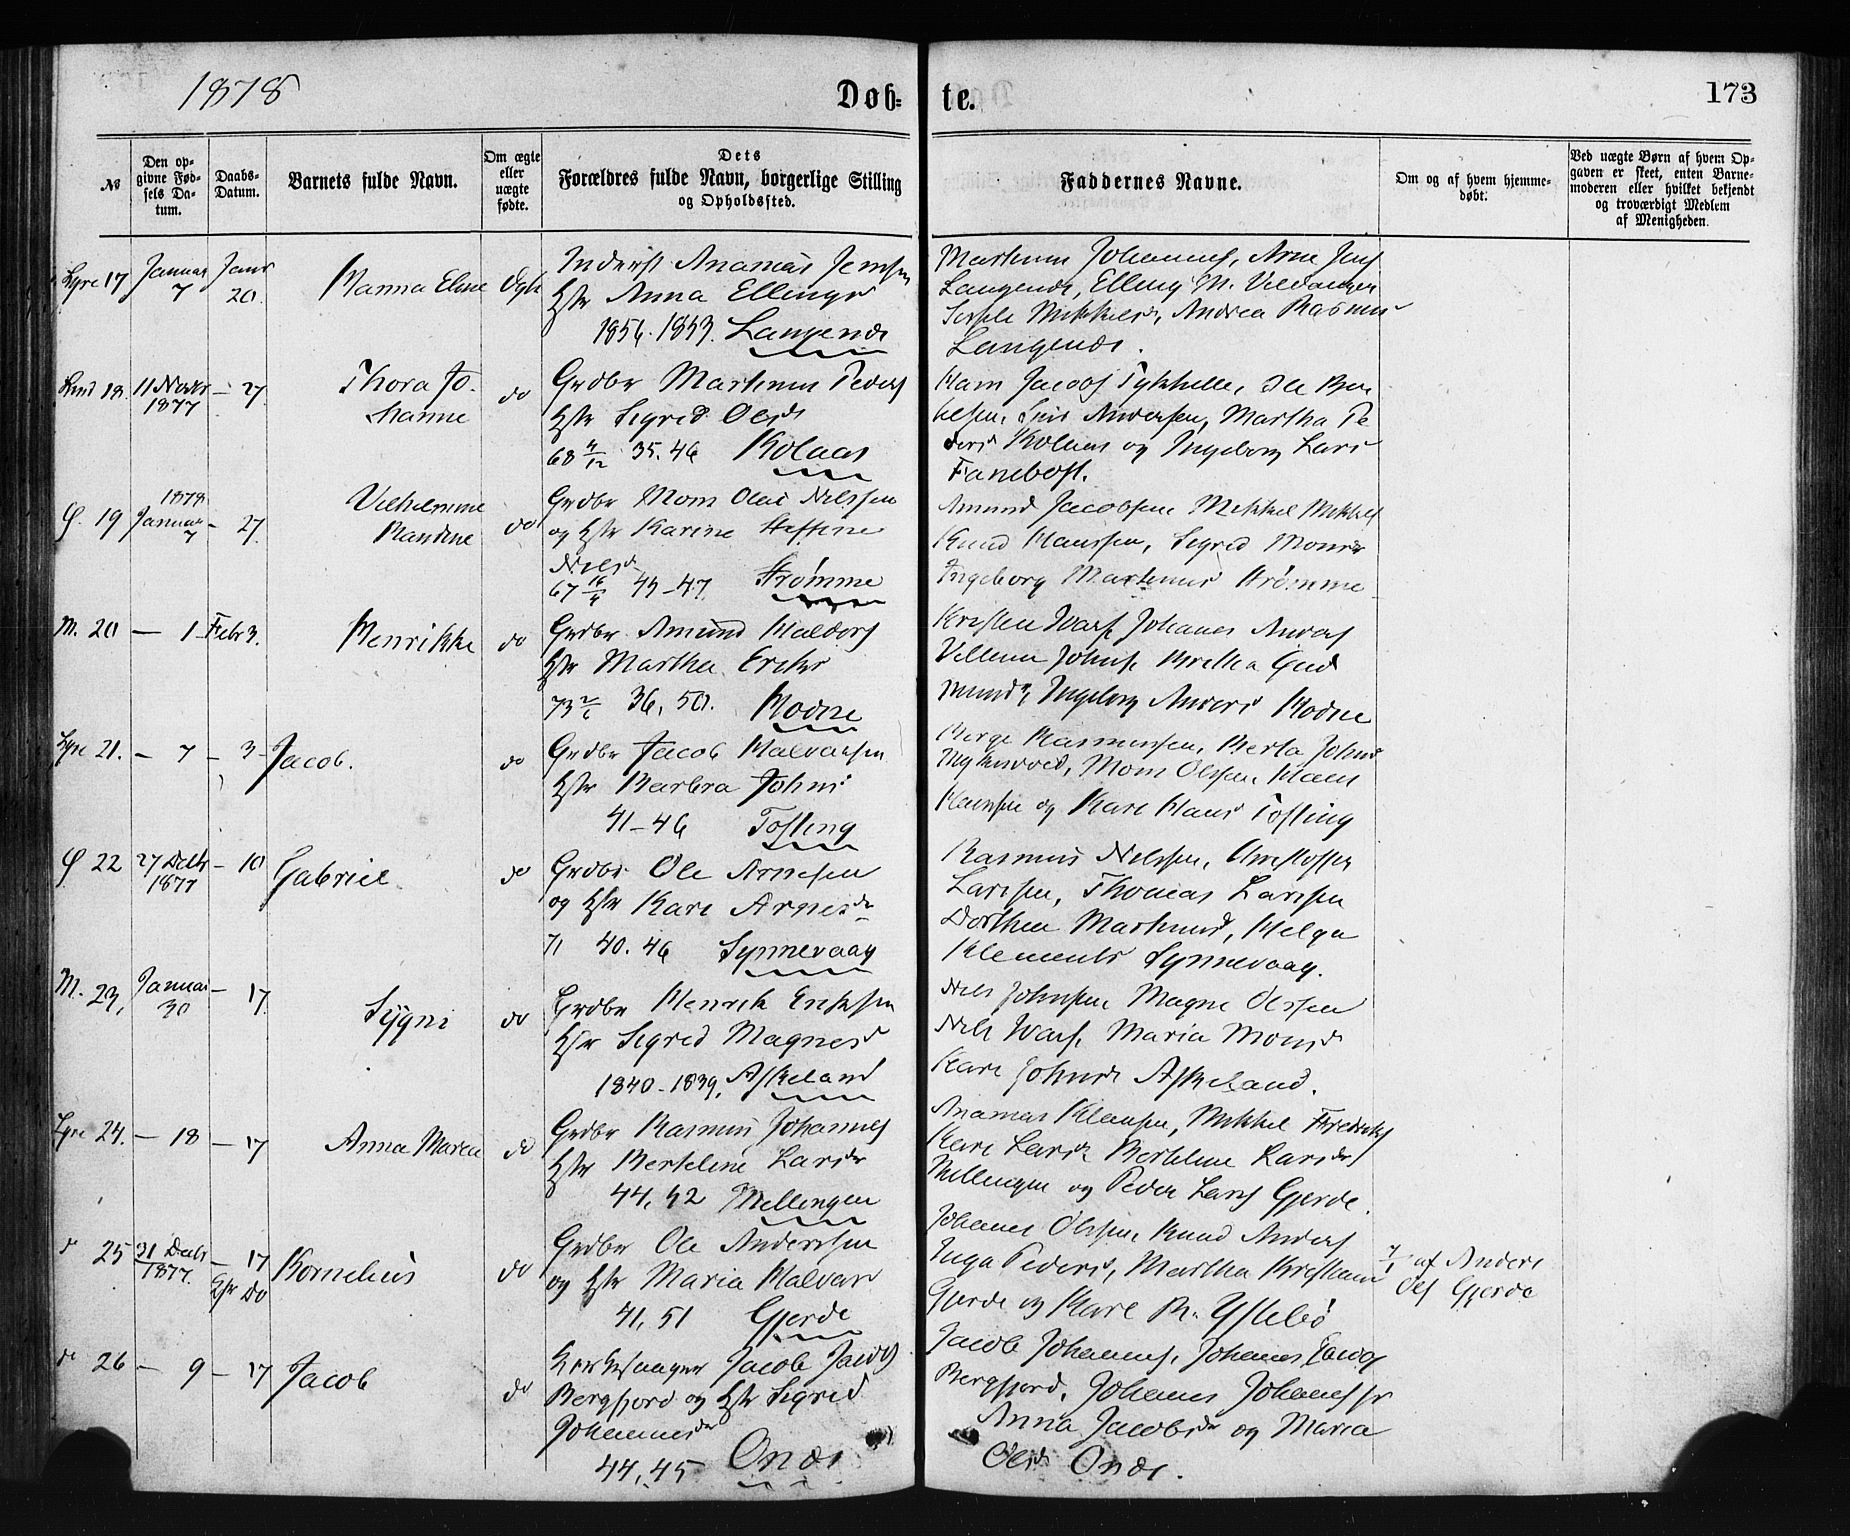 1878
Døb-
te.
173
№
Den op-
givne Fød-
sels Da-
tum.
Daabs-
Datum.
Barnets fulde Navn.
Om ægte
eller
uægte
fødte.
Dets
Forældres fulde Navn, borgerlige Stilling
og Opholdssted.
Faddernes Navne.
Om og af hvem hjemme-
døbt.
Ved uægte Børn af hvem Op-
gaven er skeet, enten Barne-
moderen eller hvilket bekjendt
og troværdigt Medlem
af Menigheden.
17
Januar
7
Janr
20.
Hanna Eline
Ægte
Inderst Ananias Jensen
Hstr Anna Ellings
1856. 1853. Langenæs
Martinus Johannes, Arne Jens
Langenæs, Elling M.
Mikkelsd, Andrea Rasmus
Langenæs.
18
11 Novbr
1877
- 27.
Thora Jo-
hanne
do
Grdbr Martinus Peders
Hstr Sigrid Olsd
68 4/12 35. 46 Kolaas
Hans Jacobs Tykhelle, Ole Ber-
telsen, Andersen, Martha Pe-
ders Kolaas og Ingeborg Lars
Fanebost.
19
1878
Januar
7
- 27.
Vilhelmine
Randine
do
Grdbr Mons Olai Nilssen
og Hstr Karine Steffine
Nilsd
67 43-47. Strømme
Amund Jacobsen Mikkel Mikkels
Knud Hanssen, Sigrid Monsd
Ingeborg Martinus Strømme
M. 20 - 1 Febr 3.
Henrikke
do
Grdbr Amund Haldors
Hstr Martha Eriks
73 2/6 36, 50. Hodne
Kristen Johanes Anders
Villum Johns Britha Gud-
munds, Ingeborg Anders Hodne
21. - 7 - 3 - Jacob.
do
Grdbr Jacob Halvorsen
Hstr Barbra Johns
41-46 Tofting
Børge Rasmussen, Berta Johns
Mons Olssen Hans
Hanssen og Kari Hans Tofting
22
27 Decbr
1877
- 10
Gabriel.
do
Grdbr Ole Arnesen
og Hstr Kari Arnesdr
71 40. 46 Synnevaag
Rasmus Nilssen, Christoffer
Larssen, Thomas Larssen
Dorthea Martinusd, Helga
Klements Synnevaag.
M. 23,
Januar
30
- 17.
Sygni
do
Grdbr Henrik Eriksen
Hstr Sigrid Magnesd
1840-1839, Askeland
Nils Johnsen Magne Olssen
Nils Maria Monsd
Kari Johnsd Askeland.
24. - 18 - 17
Anna Maria
do
Grdbr Rasmus Johannes
Hstr Berteline Larsdr
44, 42 Mellingen
Ananias Klausen, Mikkel Fredriks
Kari Larsd Berteline Larsdr
Mellingen og Peder Lars Gjerde.
25
31 Decbr
1877.
- 17
Kornelius
do
Grdbr Ole Anderssen
og Hstr Maria Halvors
41, 51 Gjerde
Johanes Olssen, Knud Anders
Inga Peders, Martha Kristians
Gjerde og Kari R. Ystebø
7/1 af Anders
Ols Gjerde
26 - 9 - 17 Jacob
do
Kirkesanger Jacob Jacobs
Bergfjord og Hstr Sigrid
Johannesdr
44, 45 Onæs
Jacob Johannes, Johannes Jacobs
Bergfjord, Johannes Johannes
Anna Jacobsdr og Maria
Olsd Onæs.